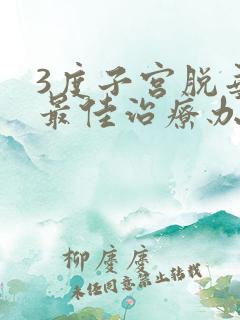 3度子宫脱垂
最佳治疗办
柳庆庆
未经同意禁止转载